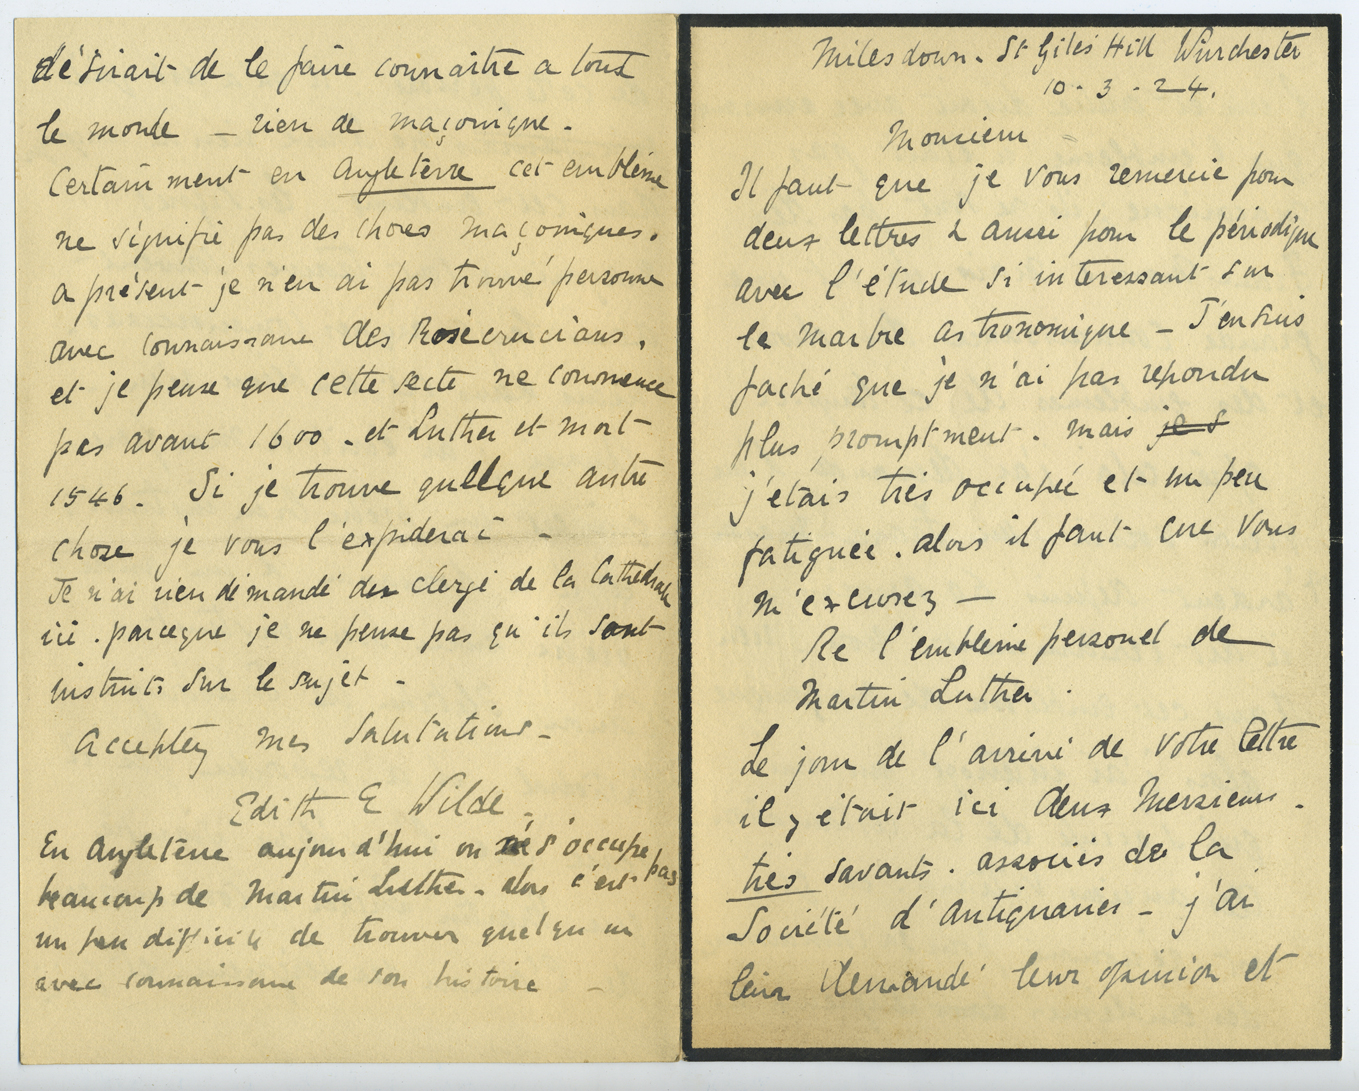 Milesdown. St Giles Hill Winchester
10 - 3 - 24.
Monsieur
Il faut que je vous remercie pour
deux lettres & aussi pour le périodique
avec l'étude si interessant sur
le marbre astronomique – J'en suis
faché que je n'ai pas repondu
plus promptment. mais je s
j'etais très occupée et un peu
fatiguée. alors il faut que vous
m'excusez —
Re l'emblème personel de
Martin Luther.
Le jour de l'arrivé de votre lettre
il y était ici deux Messieurs.
très savants. associés de la
Société d'Antiquaries – j'ai
leur demandé leur opinion et
désirait de le faire connaitre a tout
le monde – rien de maçonique.
Certainment en Angleterre cet emblème
ne signifie pas des choses maçoniques.
a présent je n'en ai pas trouvé personne
avec connaissance des Rosicrucians.
et je pense que cette secte ne commence
pas avant 1600 – et Luther et mort
1546. Si je trouve quelque autre
chose je vous l'expiderai –
Je n'ai rien demandé des clergé de la Cathedrale
ici. parceque je ne pense pas qu'ils sont
instruits sur le sujet –
Acceptez mes salutations –
Edith E Wilde.
En Angleterre aujourd'hui on s'occupe pas
beaucoup de Martin Luther – alors c'est
un peu difficile de trouver quelqu'un
avec connaissance de son histoire –